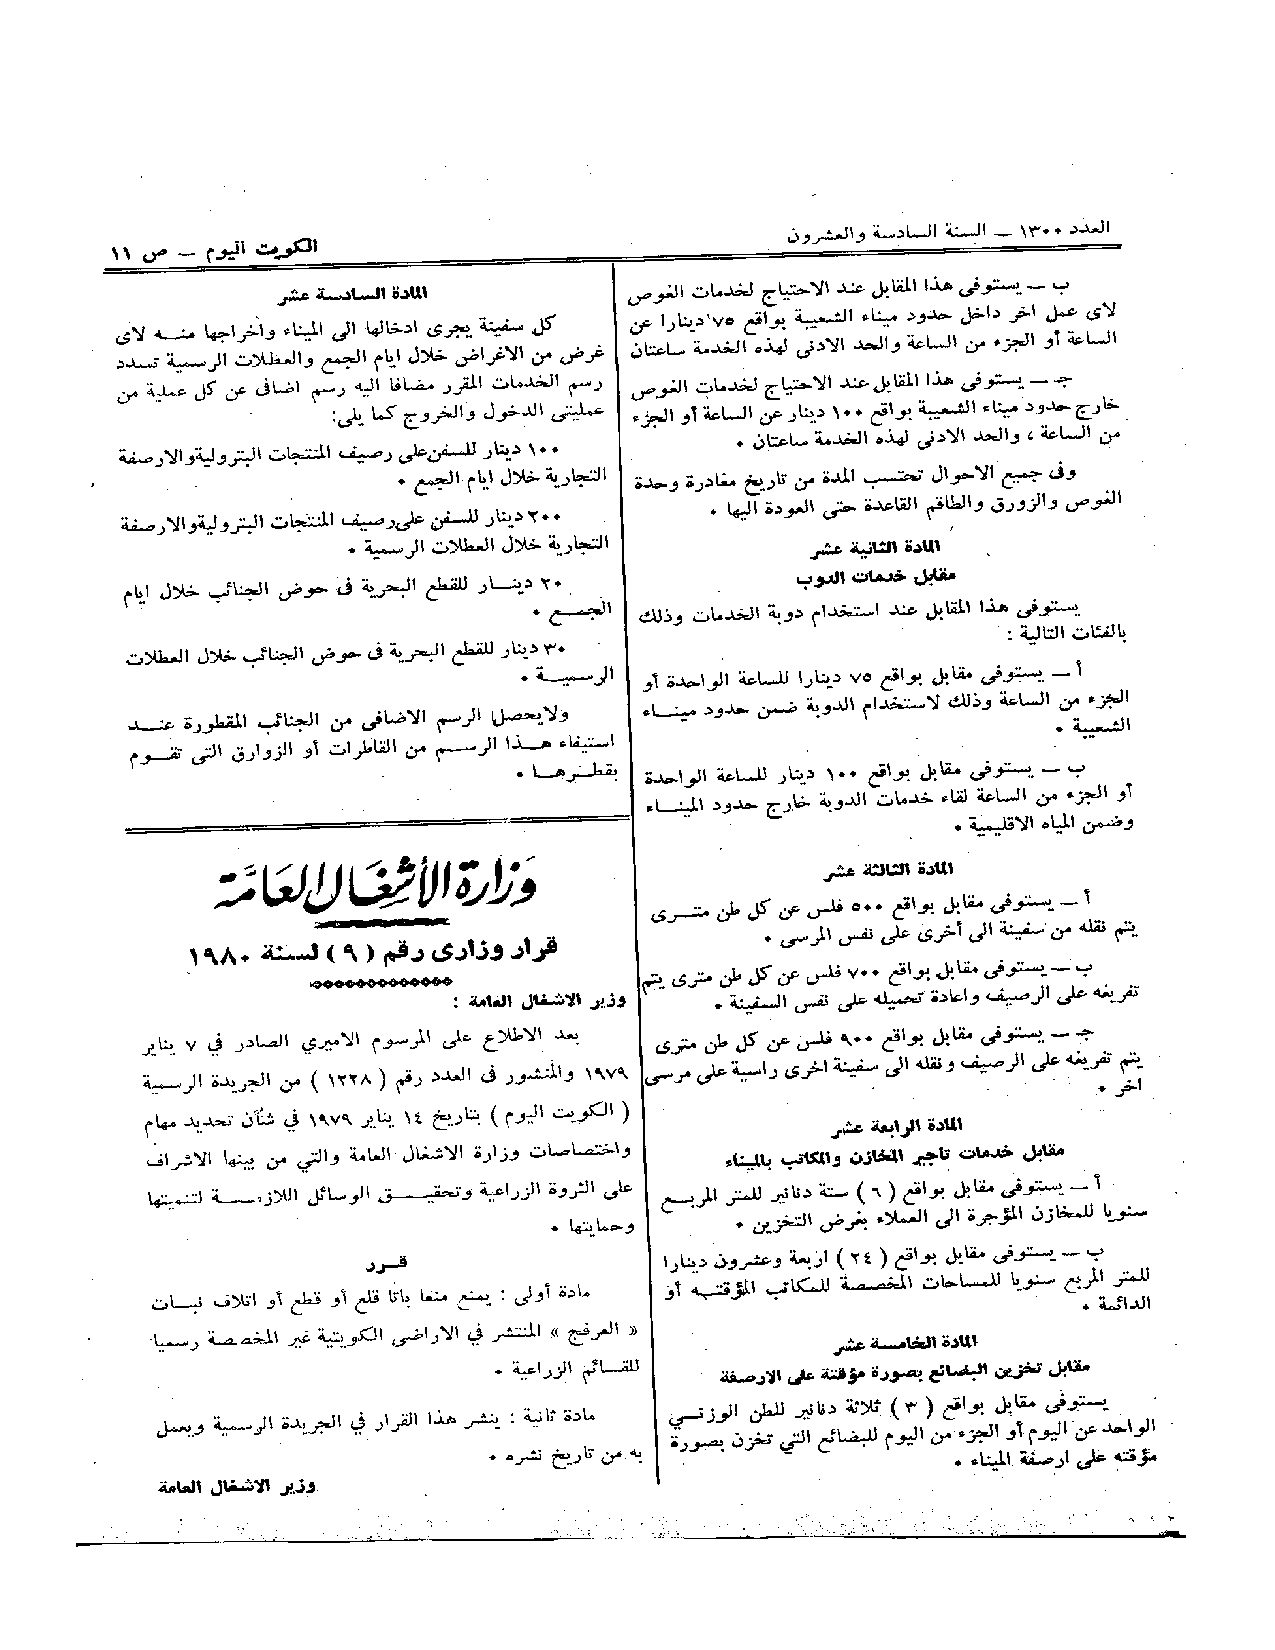 العدد ١٣٠٠ – السنة السادسة والعشرون
الكويت اليوم – ص ١١
ب – يستوفى هذا المقابل عند الاحتياج لخدمات الغوص
لاى عمل اخر داخل حدود ميناء الشعيبة بواقع ٧٥ دينارا عن
الساعة أو الجزء من الساعة والحد الادنى لهذه الخدمة ساعتان
جـ – يستوفى هذا المقابل عند الاحتياج لخدمات الغوص
خارج حدود ميناء الشعيبة بواقع ١٠٠ دينار عن الساعة أو الجزء
من الساعة ، والحد الادنى لهذه الخدمة ساعتان .
وفى جميع الاحوال تحتسب المدة من تاريخ مغادرة وحدة
الغوص والزورق والطاقم القاعدة حتى العودة اليها .
المادة الثانية عشر
مقابل خدمات الدوب
يستوفى هذا المقابل عند استخدام دوبة الخدمات وذلك
بالفئات التالية :
أ – يستوفى مقابل بواقع ٧٥ دينارا للساعة الواحدة أو
الجزء من الساعة وذلك لاستخدام الدوبة ضمن حدود مينـــاء
الشعيبة .
ب – يستوفى مقابل بواقع ١٠٠ دينار للساعة الواحدة
أو الجزء من الساعة لقاء خدمات الدوبة خارج حدود المينــاء
وضمن المياه الاقليمية .
المادة الثالثة عشر
أ – يستوفى مقابل بواقع ٥٠٠ فلس عن كل طن متــرى
يتم نقله من سفينة الى أخرى على نفس المرسى .
ب – يستوفى مقابل بواقع ٧٠٠ فلس عن كل طن مترى يتم
تفريغه على الرصيف واعادة تحميله على نفس السفينة .
جـ – يستوفى مقابل بواقع ٩٠٠ فلس عن كل طن مترى
يتم تفريغه على الرصيف ونقله الى سفينة اخرى راسية على مرسى
اخر .
المادة الرابعة عشر
مقابل خدمات تاجير المخازن والمكاتب بالميناء
أ – يستوفى مقابل بواقع ( ٦ ) ستة دنانير للمتر المربــع
سنويا للمخازن المؤجرة الى العملاء بغرض التخزين .
ب – يستوفى مقابل بواقع ( ٢٤ ) اربعة وعشرون دينارا
للمتر المربع سنويا للمساحات المخصصة للمكاتب المؤقتــه أو
الدائمة .
المادة الخامسة عشر
مقابل تخزين البضائع بصورة مؤقتة على الارصفة
يستوفى مقابل بواقع ( ٣ ) ثلاثة دنانير للطن الوزنــي
الواحد عن اليوم أو الجزء من اليوم للبضائع التي تخزن بصورة
مؤقته على ارصفة الميناء .
المادة السادسة عشر
كل سفينة يجرى ادخالها الى الميناء واخراجها منــه لاى
غرض من الاغراض خلال ايام الجمع والعطلات الرسمية تسدد
رسم الخدمات المقرر مضافا اليه رسم اضافى عن كل عملية من
عمليتى الدخول والخروج كما يلى:
١٠٠ دينار للسفن على رصيف المنتجات البترولية والارصفة
التجارية خلال ايام الجمع .
٢٠٠ دينار للسفن على رصيف المنتجات البترولية والارصفة
التجارية خلال العطلات الرسمية .
٢٠ دينـــار للقطع البحرية فى حوض الجنائب خلال ايام
الجمـــع .
٣٠ دينار للقطع البحرية فى حوض الجنائب خلال العطلات
الرسميـــة .
ولايحصل الرسم الاضافى من الجنائب المقطورة عنـــد
استيفاء هـــذا الرســـم من القاطرات أو الزوارق التى تقــوم
بقطـرهــا .
وزارة الأشغال العامة
قرار وزارى رقم ( ٩ ) لسنة ١٩٨٠
وزير الاشغال العامة :
بعد الاطلاع على المرسوم الاميري الصادر في ٧ يناير
١٩٧٩ والمنشور فى العدد رقم ( ١٢٢٨ ) من الجريدة الرسمية
( الكويت اليوم ) بتاريخ ١٤ يناير ١٩٧٩ في شأن تحديد مهام
واختصاصات وزارة الاشغال العامة والتي من بينها الاشراف
على الثروة الزراعية وتحقيـــق الوسائل اللازمـــة لتنميتها
وحمايتها .
قــرر
مادة أولى : يمنع منعا باتا قلع أو قطع أو اتلاف نبــات
« العرفج » المنتشر في الاراضى الكويتية غير المخصصة رسميا
للقــائم الزراعية .
مادة ثانية : ينشر هذا القرار في الجريدة الرسمية ويعمل
به من تاريخ نشره .
وزير الاشغال العامة